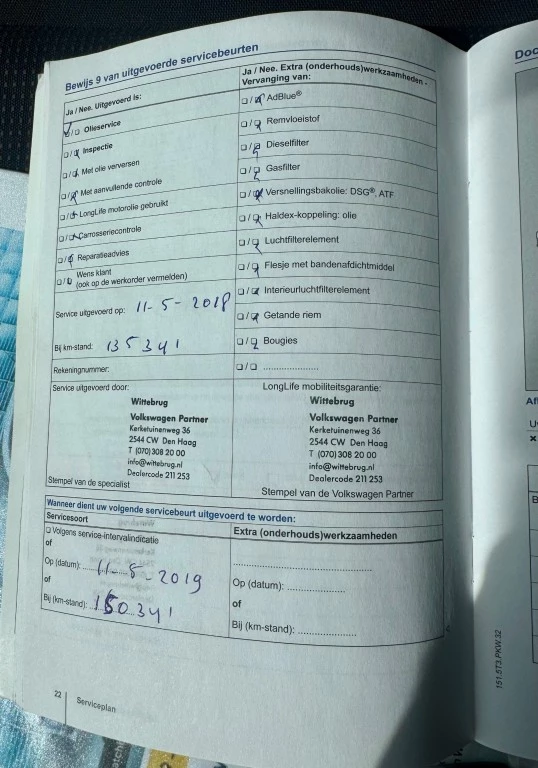 Bewijs 9 van uitgevoerde servicebeurten
Ja / Nee. Uitgevoerd is:
☑/☐ Olieservice
☐/☒ Inspectie
☐/☒ Met olie verversen
☐/☒ Met aanvullende controle
☐/☒ LongLife motorolie gebruikt
☐/☒ Carrosseriecontrole
☐/☒ Reparatieadvies
☐/☒ Wens klant
(ook op de werkorder vermelden)
Service uitgevoerd op: 11-5-2018
Bij km-stand: 135341
Rekeningnummer:
Ja / Nee. Extra (onderhouds)werkzaamheden -
Vervanging van:
☐/☒ AdBlue®
☐/☒ Remvloeistof
☐/☒ Dieselfilter
☐/☒ Gasfilter
☐/☒ Versnellingsbakolie: DSG®, ATF
☐/☒ Haldex-koppeling: olie
☐/☒ Luchtfilterelement
☐/☒ Flesje met bandenafdichtmiddel
☐/☒ Interieurluchtfilterelement
☐/☒ Getande riem
☐/☒ Bougies
☐/☐ .....................
Service uitgevoerd door:
Wittebrug
Volkswagen Partner
Kerketuinenweg 36
2544 CW Den Haag
T (070) 308 20 00
info@wittebrug.nl
Dealercode 211 253
Stempel van de specialist
LongLife mobiliteitsgarantie:
Wittebrug
Volkswagen Partner
Kerketuinenweg 36
2544 CW Den Haag
T (070) 308 20 00
info@wittebrug.nl
Dealercode 211 253
Stempel van de Volkswagen Partner
Wanneer dient uw volgende servicebeurt uitgevoerd te worden:
Servicesoort
☐ Volgens service-intervalindicatie
of
Op (datum): 11-5-2019
of
Bij (km-stand): 150341
Extra (onderhouds)werkzaamheden
Op (datum): ..................
of
Bij (km-stand): ..................
22
Serviceplan
151.5T3.PKW.32
Doc